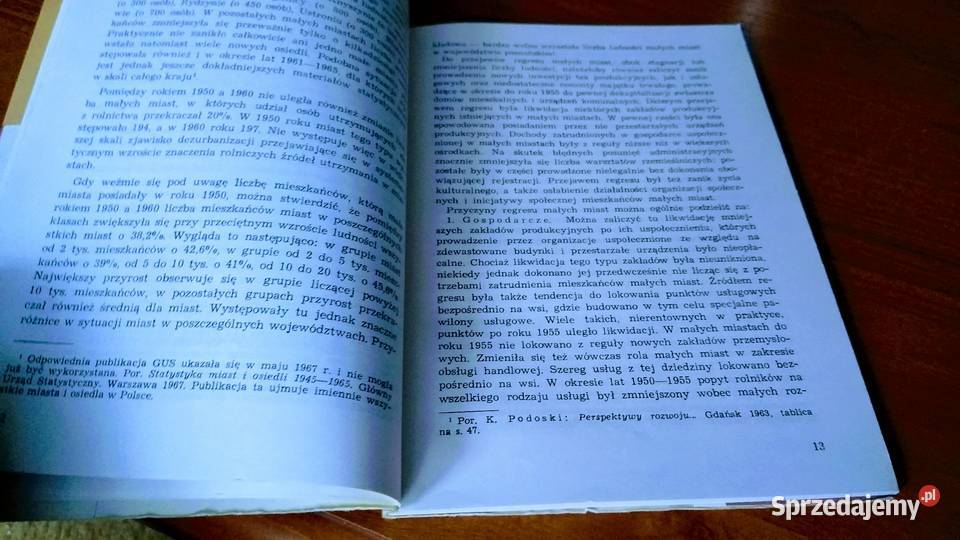 (o 300 osób), Rydzynie (o 450 osób), Ustroniu (o 300
wie (o 700 osób). W pozostałych małych miastach
kańców zmniejszyła się przeważnie tylko o
Praktycznie nie zanikło całkowicie ani jedno małe
wstało natomiast wiele nowych osiedli. Podobna
stępowała również i w okresie lat 1961—1965, dla
jest jednak jeszcze dokładniejszych materiałów
w skali całego kraju¹.
Pomiędzy rokiem 1950 a 1960 nie uległa również zmianie
ba małych miast, w których udział osób utrzymujących
z rolnictwa przekraczał 20%. W 1950 roku miast tego typu
stępowało 194, a w 1960 roku 197. Nie występuje więc w
szej skali zjawisko dezurbanizacji przejawiające się w
tycznym wzroście znaczenia rolniczych źródeł utrzymania w
stach.
Gdy weźmie się pod uwagę liczbę mieszkańców, którą małe
miasta posiadały w roku 1950, można stwierdzić, że pomiędzy
rokiem 1950 a 1960 liczba mieszkańców miast w poszczególnych
klasach zwiększyła się przy przeciętnym wzroście ludności
stkich miast o 38,2%. Wygląda to następująco: w grupie miast
od 2 tys. mieszkańców o 42,6%, w grupie od 2 do 5 tys. miesz-
kańców o 39%, od 5 do 10 tys. o 41%, od 10 do 20 tys. o 45,6%
Największy przyrost obserwuje się w grupie liczącej powyżej
10 tys. mieszkańców, w pozostałych grupach przyrost przekra-
czał również średnią dla miast. Występowały tu jednak znaczne
różnice w sytuacji miast w poszczególnych województwach. Przy-
¹ Odpowiednia publikacja GUS ukazała się w maju 1967 r. i nie mogła
już być wykorzystana. Por. Statystyka miast i osiedli 1945—1965. Główny
Urząd Statystyczny. Warszawa 1967. Publikacja ta ujmuje imiennie wszy-
stkie miasta i osiedla w Polsce.
kładowo — bardzo wolno wzrastała liczba ludności małych miast
w województwie poznańskim¹.
Do przejawów regresu małych miast, obok stagnacji lub
zmniejszenia liczby ludności, należałoby również zaliczyć zanik
prowadzenia nowych inwestycji tak produkcyjnych, jak i usłu-
gowych oraz niedostateczne remonty majątku trwałego, prowa-
dzące w okresie do roku 1955 do pewnej dekapitalizacji zwłaszcza
domów mieszkalnych i urządzeń komunalnych. Dalszym przeja-
wem regresu była likwidacja niektórych zakładów produkcyj-
nych istniejących w małych miastach. W pewnej części była ona
spowodowana posiadaniem przez nie przestarzałych urządzeń
produkcyjnych. Dochody zatrudnionych w gospodarce uspołecz-
nionej w małych miastach były z reguły niższe niż w większych
ośrodkach. Na skutek błędnych posunięć administracyjnych
znacznie zmniejszyła się liczba warsztatów rzemieślniczych; po-
zostałe były w części prowadzone nielegalnie bez dokonania obo-
wiązującej rejestracji. Przejawem regresu był też zanik życia
kulturalnego, a także osłabienie działalności organizacji społecz-
nych i inicjatywy społecznej mieszkańców małych miast.
Przyczyny regresu małych miast można ogólnie podzielić na:
1. Gospodarcze. Można zaliczyć tu likwidację mniej-
szych zakładów produkcyjnych po ich uspołecznieniu, których
prowadzenie przez organizacje uspołecznione ze względu na
zdewastowane budynki i przestarzałe urządzenia było nieopła-
calne. Chociaż likwidacja tego typu zakładów była nieunikniona,
niekiedy jednak dokonano jej przedwcześnie nie licząc się z po-
trzebami zatrudnienia mieszkańców małych miast. Źródłem re-
gresu była także tendencja do lokowania punktów usługowych
bezpośrednio na wsi, gdzie budowano w tym celu specjalne pa-
wilony usługowe. Wiele takich, nierentownych w praktyce,
punktów po roku 1955 uległo likwidacji. W małych miastach do
roku 1955 nie lokowano z reguły nowych zakładów przemysło-
wych. Zmieniła się też wówczas rola małych miast w zakresie
obsługi handlowej. Szereg usług z tej dziedziny lokowano bez-
pośrednio na wsi. W okresie lat 1950—1955 popyt rolników na
wszelkiego rodzaju usługi był zmniejszony wobec małych roz-
¹ Por. K. Podoski: Perspektywy rozwoju... Gdańsk 1963, tablica
na s. 47.
13
Sprzedajemy.pl